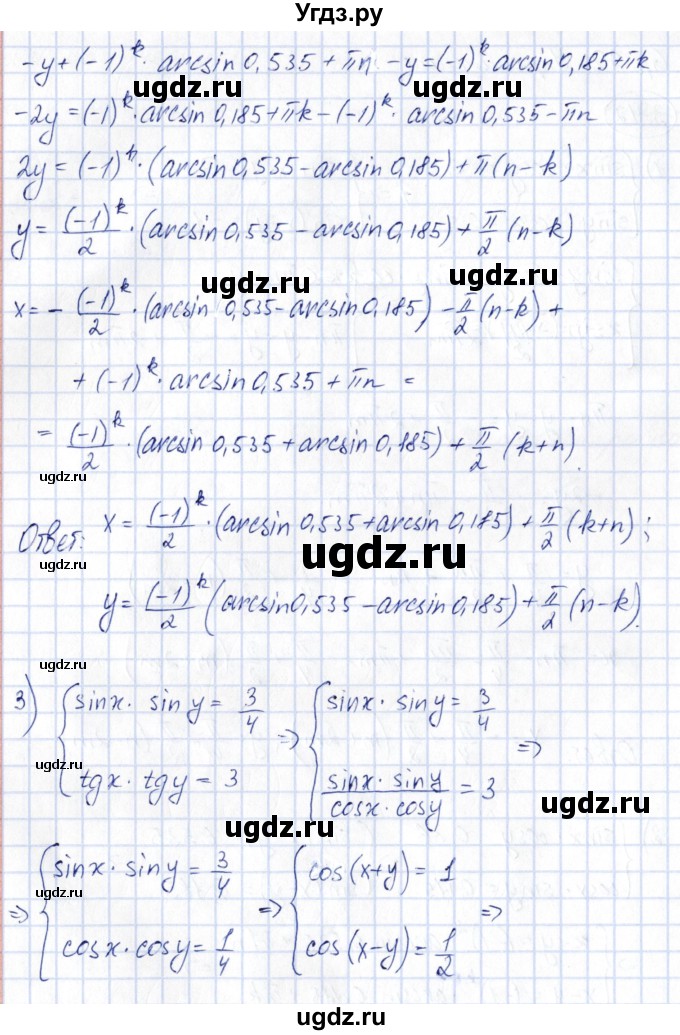 Угдз.ру
-y+(-1)^k · arcsin 0,535 + πn - y = (-1)^k · arcsin 0,185 + πk
-2y = (-1)^k · arcsin 0,185 + πk - (-1)^k · arcsin 0,535 - πn
2y = (-1)^n · (arcsin 0,535 - arcsin 0,185) + π(n-k)
y = (-1)^k/2 · (arcsin 0,535 - arcsin 0,185) + π/2 (n-k)
ugdz.ru ugdz.ru
x = - (-1)^k/2 · (arcsin 0,535 - arcsin 0,185) - π/2 (n-k) +
+ (-1)^k · arcsin 0,535 + πn =
= (-1)^k/2 · (arcsin 0,535 + arcsin 0,185) + π/2 (k+n).
ugdz.ru ugdz.ru
Ответ: x = (-1)^k/2 · (arcsin 0,535 + arcsin 0,185) + π/2 (k+n);
ugdz.ru ugdz.ru
y = (-1)^k/2 (arcsin 0,535 - arcsin 0,185) + π/2 (n-k).
ugdz.ru ugdz.ru
3) { sin x · sin y = 3/4 => { sin x · sin y = 3/4 =>
tg x · tg y = 3 sin x · sin y / cos x · cos y = 3
ugdz.ru ugdz.ru
ugdz.ru
=> { sin x · sin y = 3/4 => { cos(x+y) = 1 =>
ugdz.ru
cos x · cos y = 1/4 cos(x-y) = 1/2
ugdz.ru ugdz.ru ugdz.ru